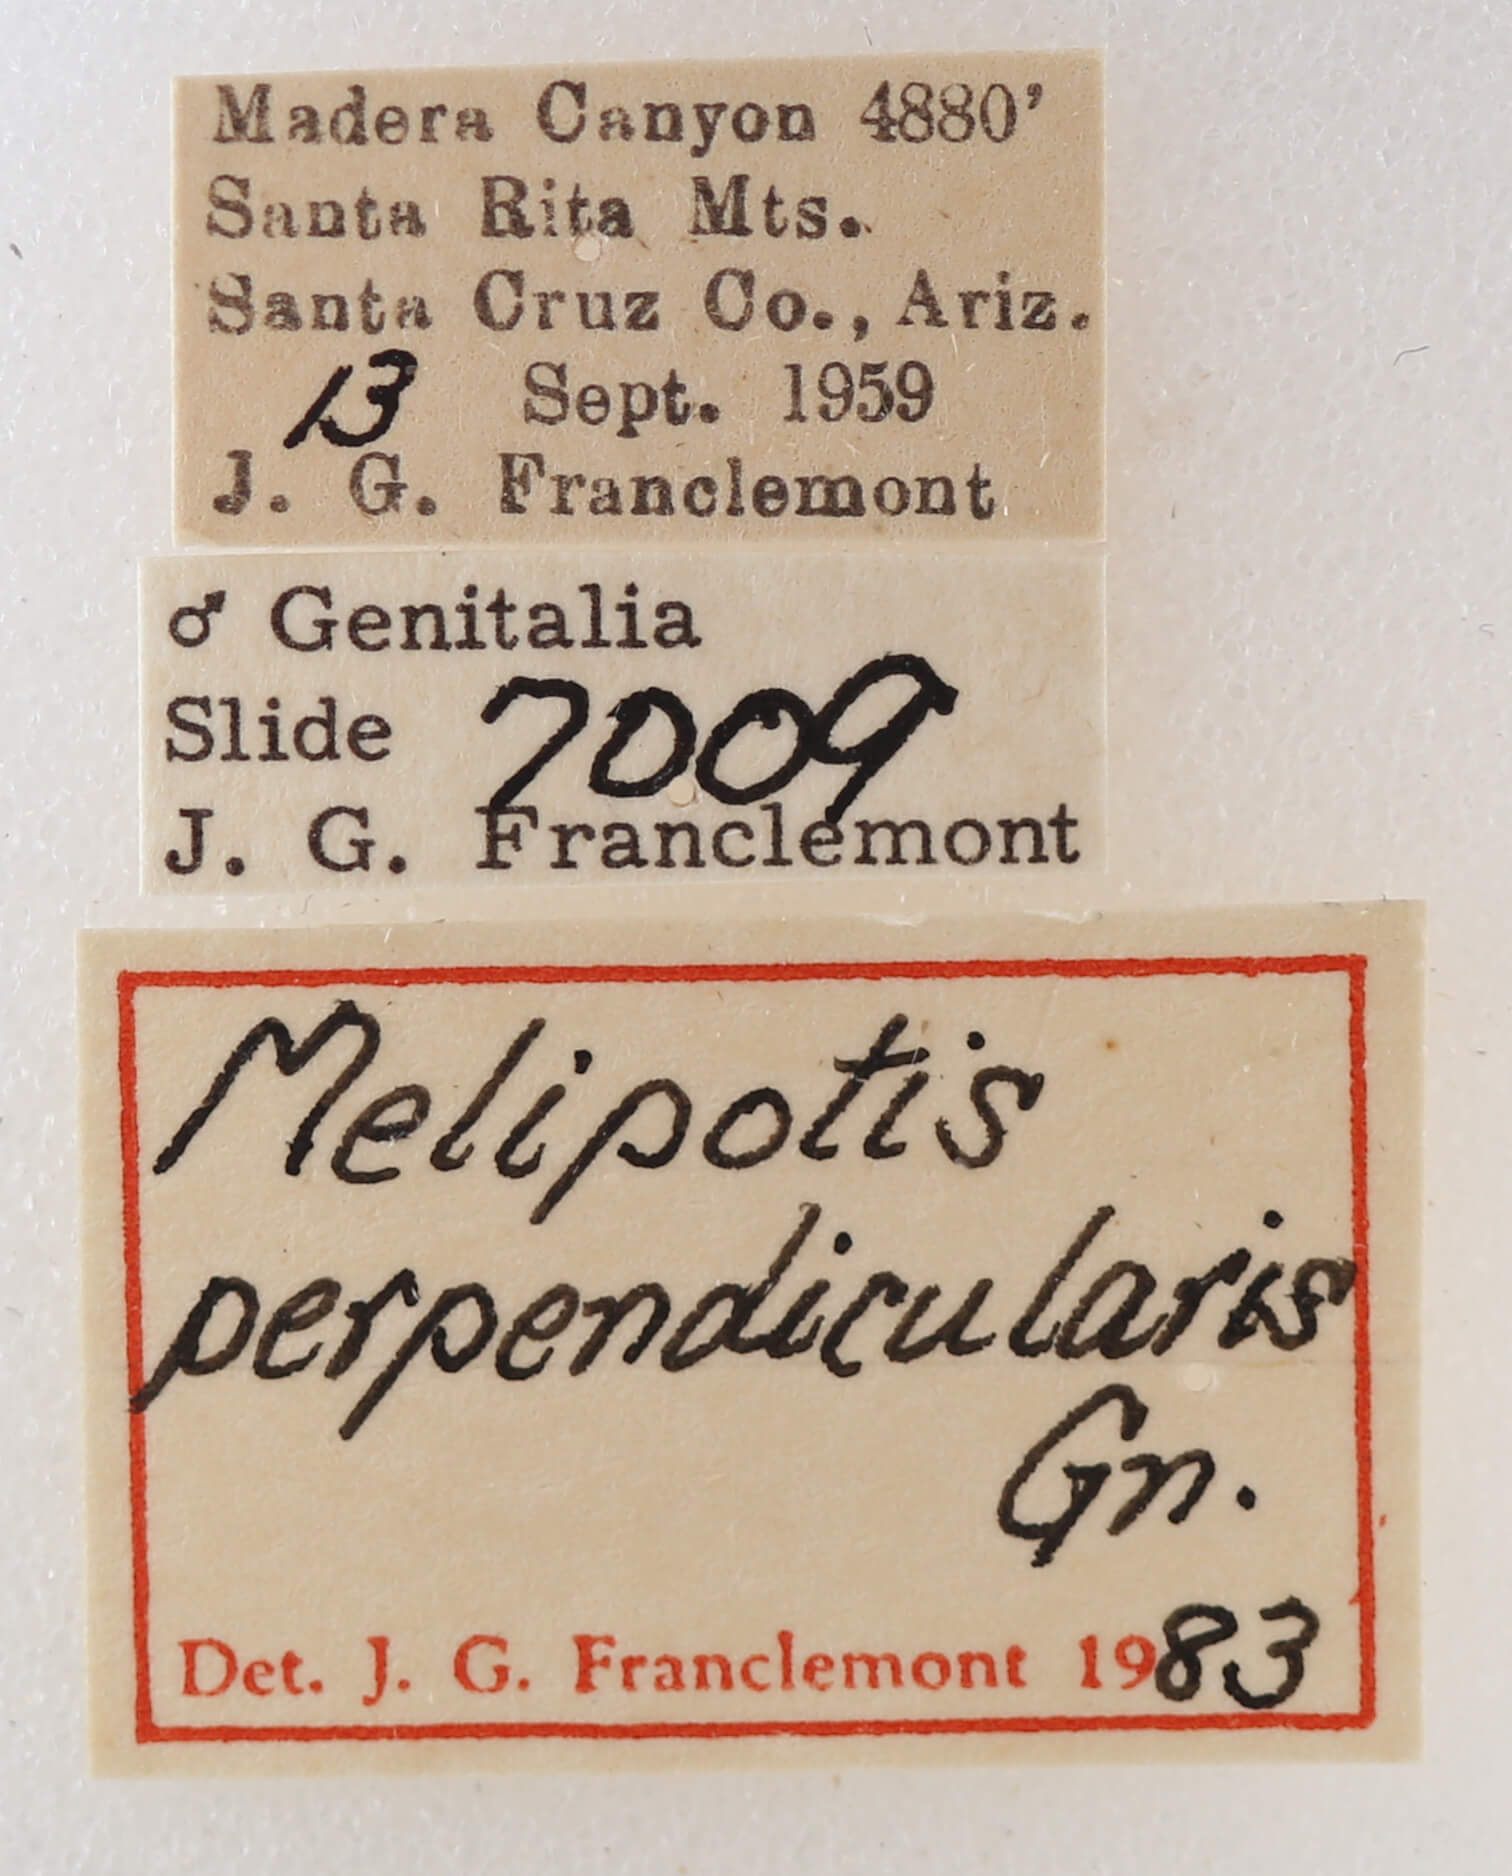 Madera Canyon 4880'
Santa Rita Mts.
Santa Cruz Co., Ariz.
13 Sept. 1959
J. G. Franclemont
♂ Genitalia
Slide 7009
J. G. Franclemont
Melipotis
perpendicularis
Gn.
Det. J. G. Franclemont 1983